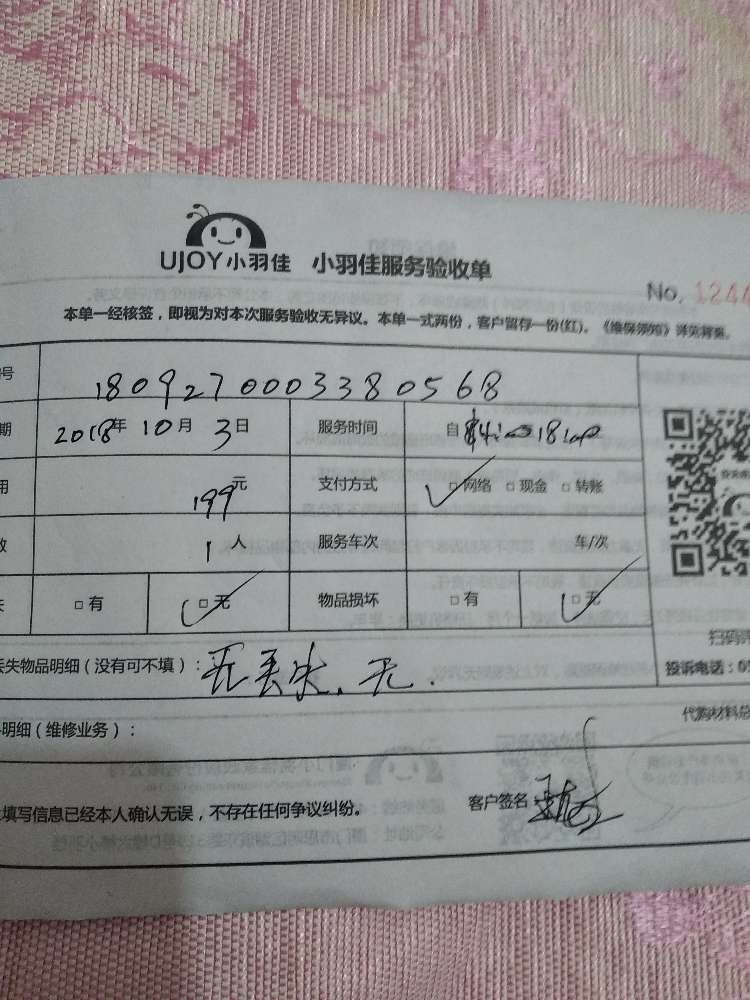 UJOY小羽佳 小羽佳服务验收单
No. 1244
本单一经核签，即视为对本次服务验收无异议。本单一式两份，客户留存一份(红)。《维保须知》详见背幕。
号 1809270003380568
期 2018年 10月 3日 服务时间 自
用 199元 支付方式 □网络 □现金 □转账
数 1人 服务车次 车/次
失 □有 □无 物品损坏 □有 □无
扫码评
丢失物品明细（没有可不填）： 无丢失、无. 投诉电话：05
明细（维修业务）： 代购材料总
填写信息已经本人确认无误，不存在任何争议纠纷。 客户签名